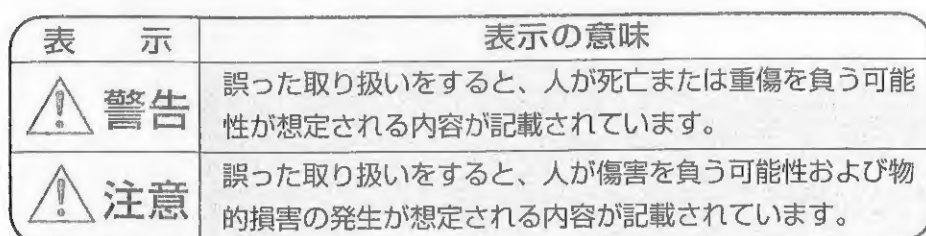 表 示 表示の意味
警告 誤った取り扱いをすると、人が死亡または重傷を負う可能
性が想定される内容が記載されています。
注意 誤った取り扱いをすると、人が傷害を負う可能性および物
的損害の発生が想定される内容が記載されています。